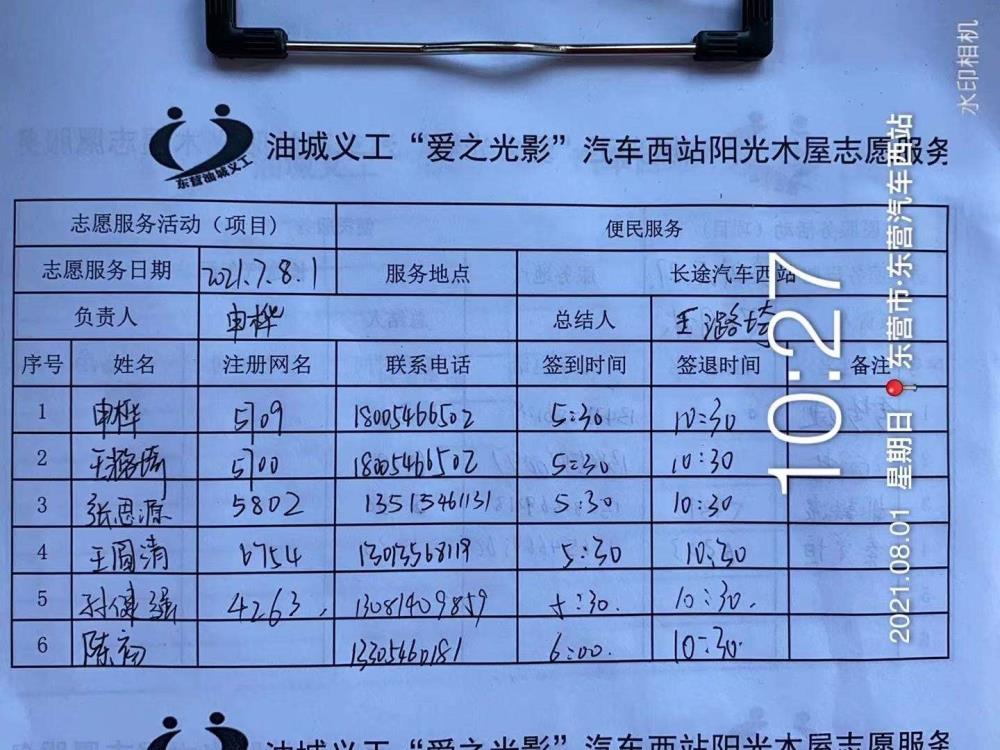 水印相机
油城义工“爱之光影”汽车西站阳光木屋志愿服务
东营油城义工
志愿服务活动（项目） 便民服务
志愿服务日期 2021.7.8.1 服务地点 长途汽车西站
负责人 申桦 总结人 王璐琦
序号 姓名 注册网名 联系电话 签到时间 签退时间 备注
1 申桦 5709 18005466502 5:30 10:30
2 王璐琦 5700 18005466502 5:30 10:30
3 张思源 5802 13515461131 5:30 10:30
4 王圆清 6754 13013568119 5:30 10:30
5 孙健强 4263. 13081409859 5:30. 10:30.
6 陈 13305460181 6:00. 10:30.
10:27
2021.08.01 星期日 东营市·东营汽车西站
油城义工“爱之光影”汽车西站阳光木屋志愿服务